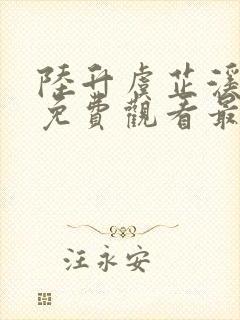 陸升虞芷溪
免費觀看最
汪永安